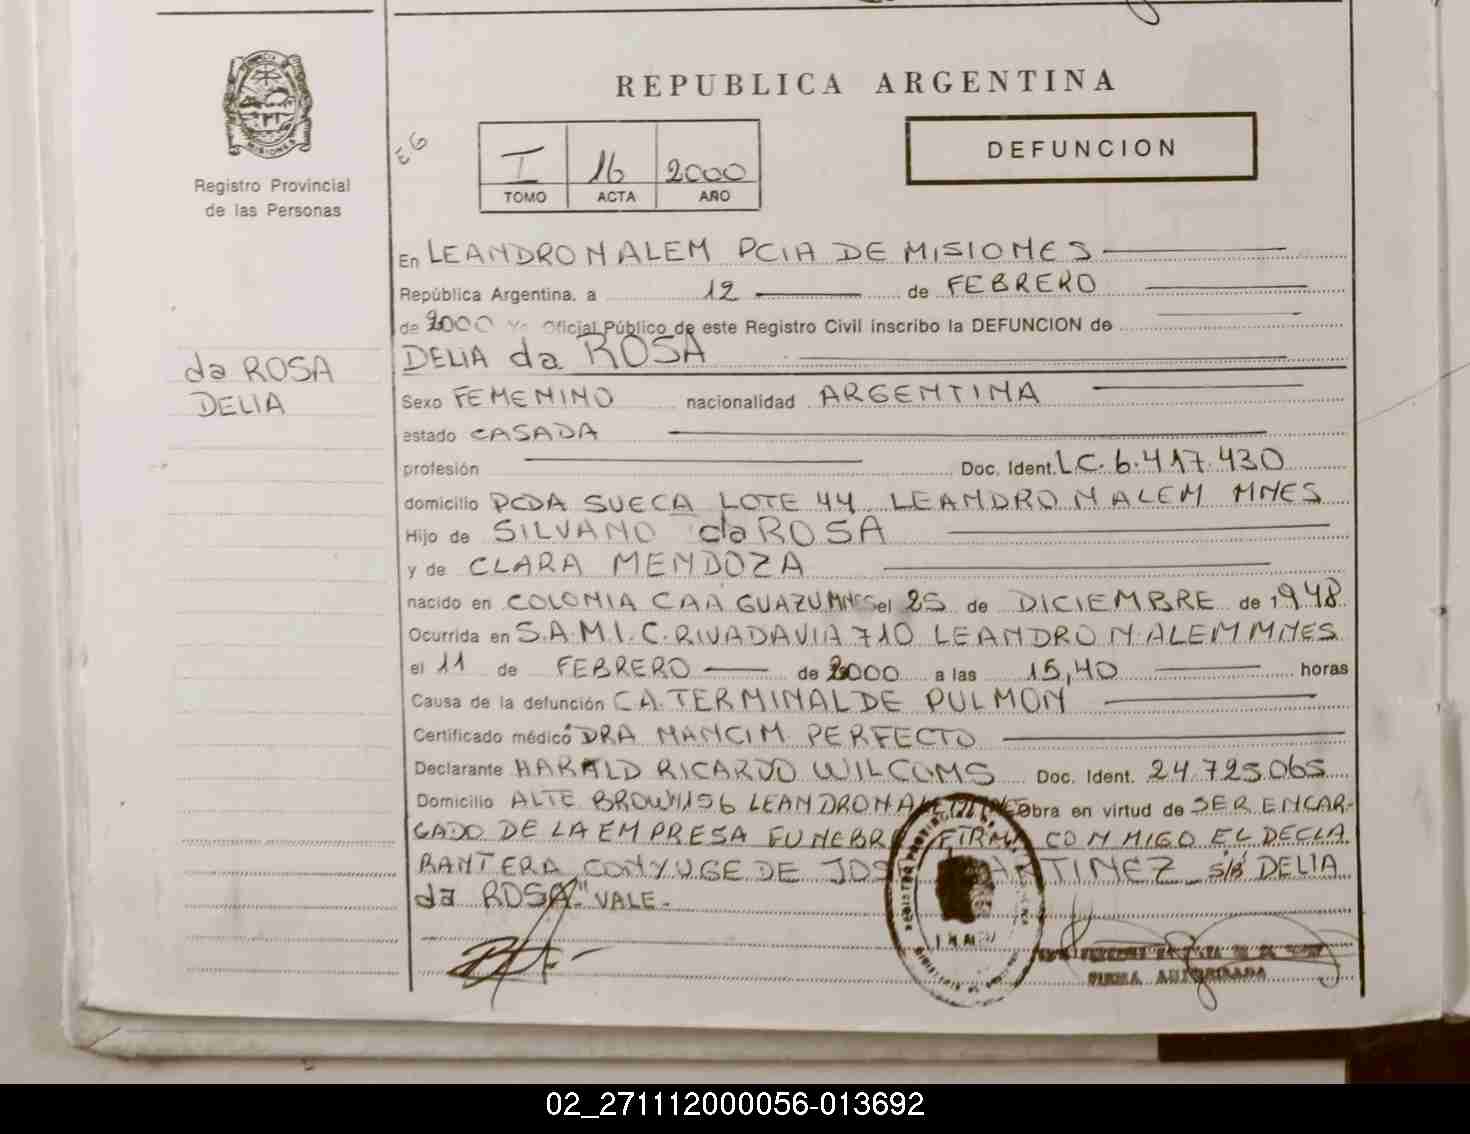 REPUBLICA ARGENTINA
DEFUNCION
MISIONES
Registro Provincial
de las Personas
E6
I 16 2000
TOMO ACTA AÑO
En LEANDRO N ALEM PCIA DE MISIONES
República Argentina, a 12 de FEBRERO
de 2000 Yo Oficial Público de este Registro Civil inscribo la DEFUNCION de
DELIA da ROSA
da ROSA
DELIA
Sexo FEMENINO nacionalidad ARGENTINA
estado CASADA
profesión Doc. Ident. L.C. 6.417.430
domicilio PCDA SUECA LOTE 44 LEANDRO N ALEM MNES
Hijo de SILVANO da ROSA
y de CLARA MENDOZA
nacido en COLONIA CAA GUAZU MNES el 25 de DICIEMBRE de 1948
Ocurrida en S.A.M.I.C. RIVADAVIA 710 LEANDRO N. ALEM MNES
el 11 de FEBRERO de 2000 a las 15,40 horas
Causa de la defunción CA. TERMINAL DE PULMON
Certificado médico DRA NANCI M. PERFECTO
Declarante HARALD RICARDO WILCOMS Doc. Ident. 24.725.065
Domicilio ALTE BROWN 156 LEANDRO N ALEM Obra en virtud de SER ENCAR-
GADO DE LA EMPRESA FUNEBRE FIRMA CONMIGO EL DECLA
RANTE RA CONYUGE DE JOSE MARTINEZ s/b DELIA
da ROSA" VALE.-
FIRMA AUTORIZADA
02_271112000056-013692